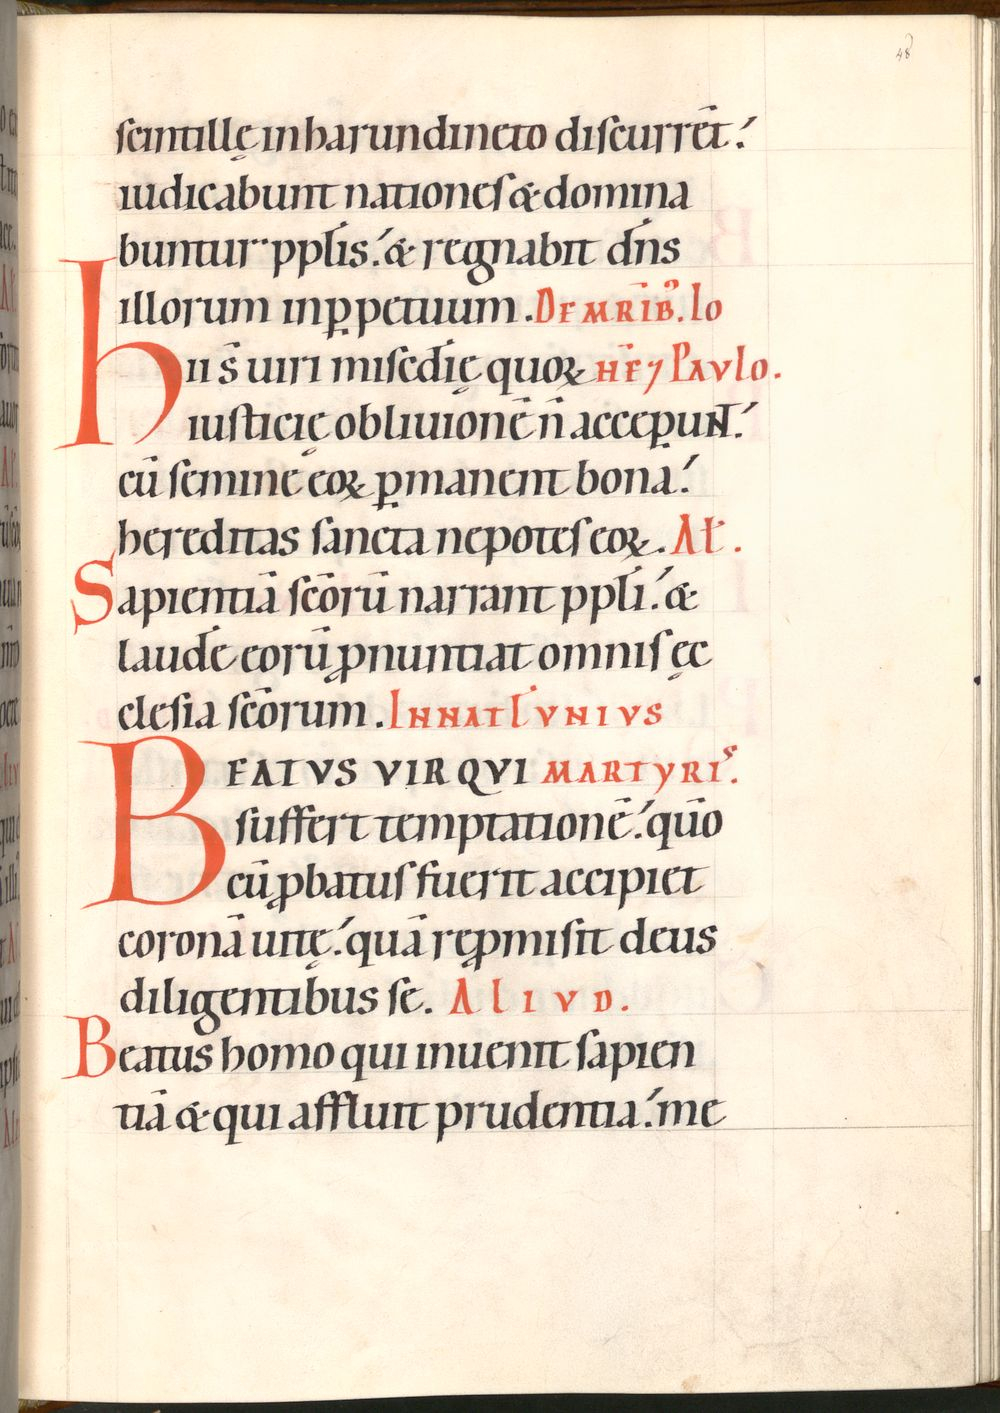 48
scintillę in harundineto discurrēt.
iudicabunt nationes & domina
buntur ppl̄is. & regnabit dn̄s
illorum inp̱petuum. DE MR̄IB᾿. Io
Hii s̄ uiri miscd̄ię quoꝝ HE 7 PAVlo.
iustitię obliuionē n̄ acceꝑuNT.
cū semine eoꝝ ꝑmanent bona.
hereditas sancta nepotes eoꝝ. Al̄.
Sapientiā sc̄orū narrant ppl̄i. &
laudē eorū ꝓnuntiat omnis ęc
clesia sc̄orum. IN NAT̄ l̄ VNIVS
BEATVS VIR QVI MARTYRIˢ.
suffert temptationē. quō
cū ꝓbatus fuerit accipiet
coronā uitę. quā reꝓmisit deus
diligentibus se. AlIVD.
Beatus homo qui inuenit sapien
tiā & qui affluit prudentia. me